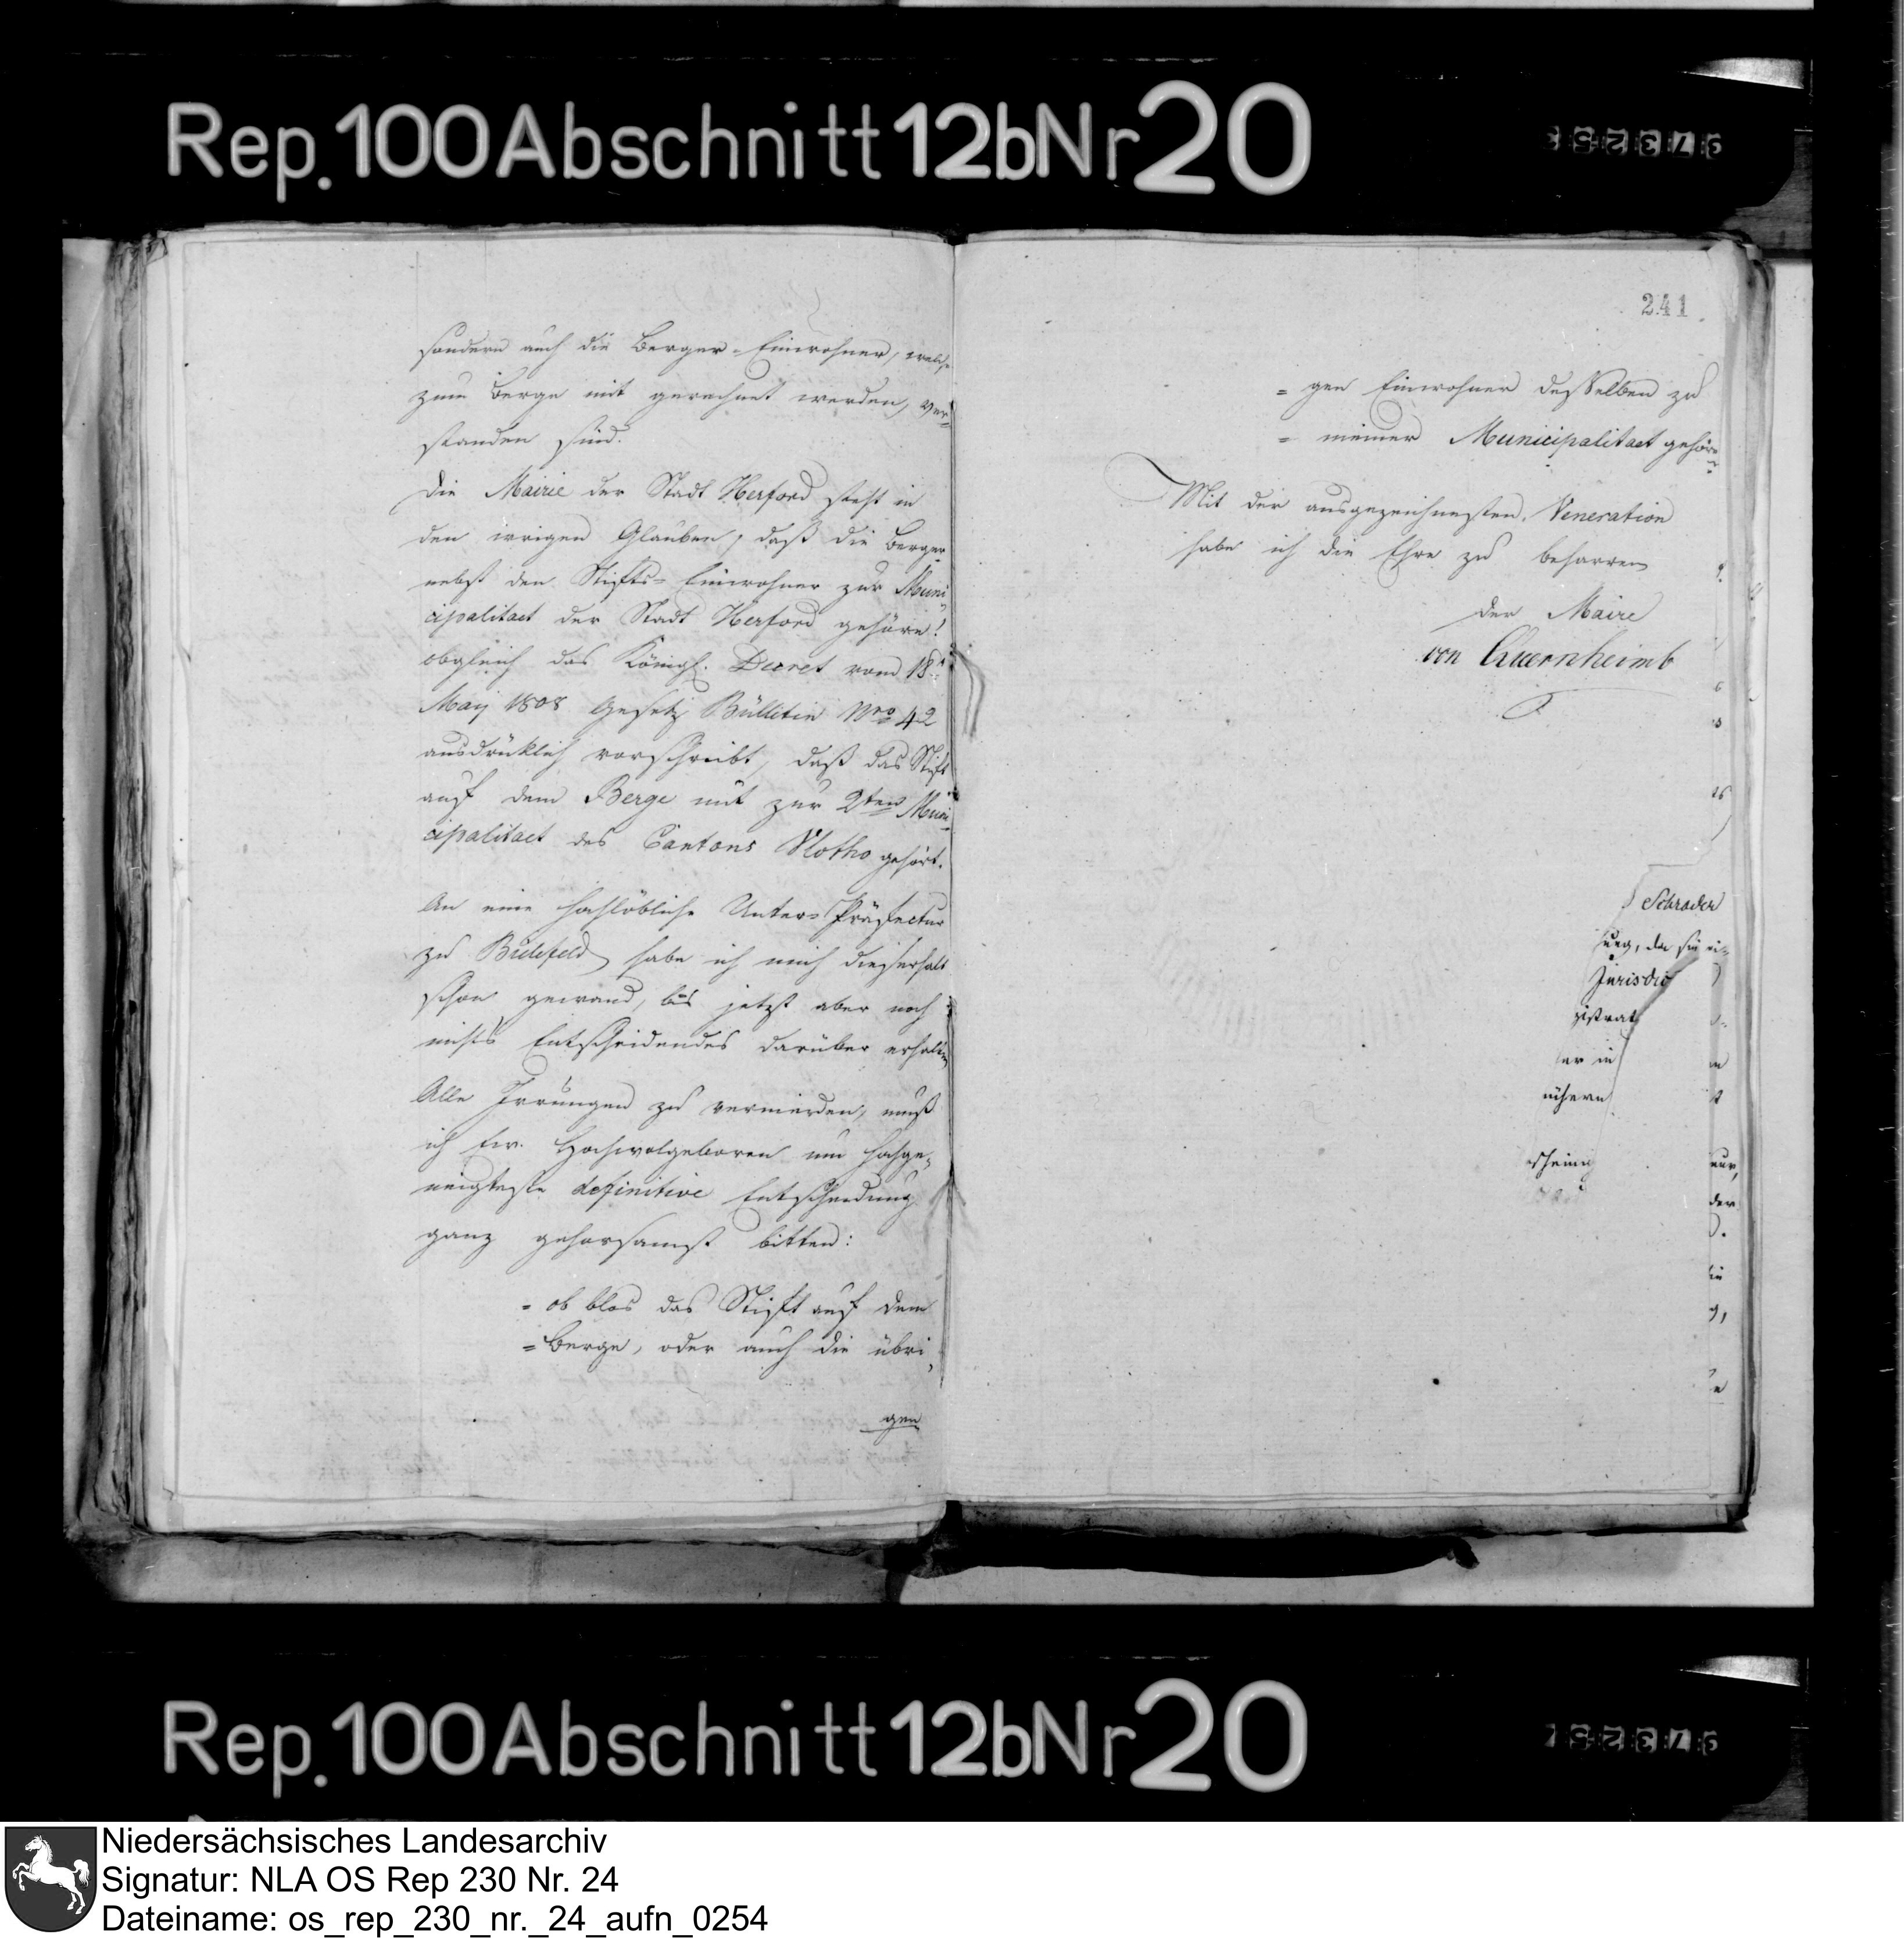 Rep.100Abschnitt12bNr20
sondern auch die Berger-Einwohner, welche
zum Berge mit gerechnet werden, ver=
standen sind.
Die Mairie der Stadt Herford steht in
den irrigen Glauben, daß die Berger
nebst den Stifts-Einwohner zur Muni
cipalitaet der Stadt Herford gehöre!
obgleich das Königl. Decret vom 18t
May 1808 Gesetz Bülletin Nro 42
ausdrüklich vorschreibt, daß das Stift
auf dem Berge mit zur 2ten Muni=
cipalitaet des Cantons Vlotho gehört.
An eine hochlöbliche Unter-Präfectur
zu Bielefeld habe ich mich dieserhalb
schon gewand, bis jetzt aber noch
nichts Entscheidendes darüber erhalten
Alle Irrungen zu vermeiden, muß
ich Ew. Hochwolgeboren um hochge=
neigteste definitive Entscheidung
ganz gehorsamst bitten:
= ob blos das Stift auf dem
= Berge, oder auch die übri=
gen
241
= gen Einwohner desselben zu
= meiner Municipalitaet gehör
Mit der ausgezeichnesten Veneration
habe ich die Ehre zu beharren
Der Maire
von Quernheimb
Schrader
Jurisdic
gistrat
er in
nähern
Rep.100Abschnitt12bNr20
Niedersächsisches Landesarchiv
Signatur: NLA OS Rep 230 Nr. 24
Dateiname: os_rep_230_nr._24_aufn_0254